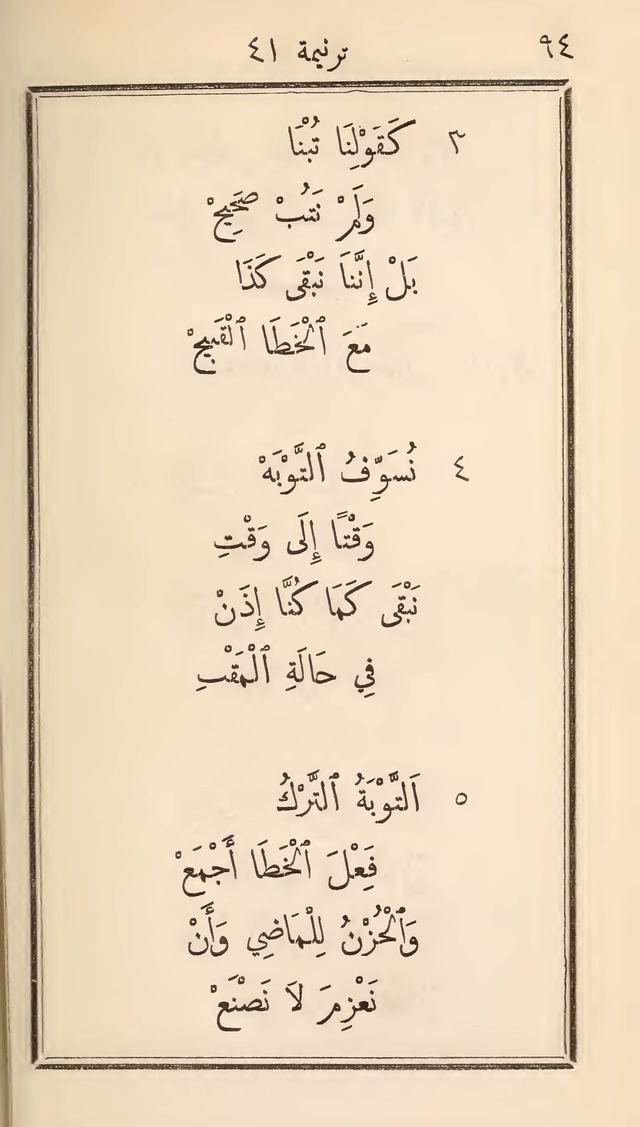 ٩٤ ترنيمة ٤١
٣ كَقَوْلِنَا تُبْنَا
وَلَمْ نَتُبْ صَحِيحْ
بَلْ إِنَّنَا نَبْقَى كَذَا
مَعَ ٱلْخَطَا ٱلْقَبِيحْ
٤ نُسَوِّفُ ٱلتَّوْبَهْ
وَقْتًا إِلَى وَقْتِ
نَبْقَى كَمَا كُنَّا إِذَنْ
فِي حَالَةِ ٱلْمَقْتِ
٥ اَلتَّوْبَةُ ٱلتَّرْكُ
فَعْلَ ٱلْخَطَا أَجْمَعْ
وَٱلْحُزْنُ لِلْمَاضِي وَأَنْ
نَعْزِمَ لاَ نَصْنَعْ